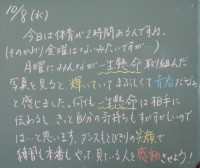 10/8(水)
今日は体育が2時間あるんですね。
(そのかわり金曜はないみたいですが…)
月曜にみんなが一生懸命取り組んだ
写真を見ると輝いていてまぶしくて青春だなぁ
と感じました。何でも一生懸命は相手に
伝わるし、きっと自分の気持ちもすがすがしいので
は…と思います。ダンスもとびきりの笑顔で
練習も本番もやって、見ている人を感動させよう!